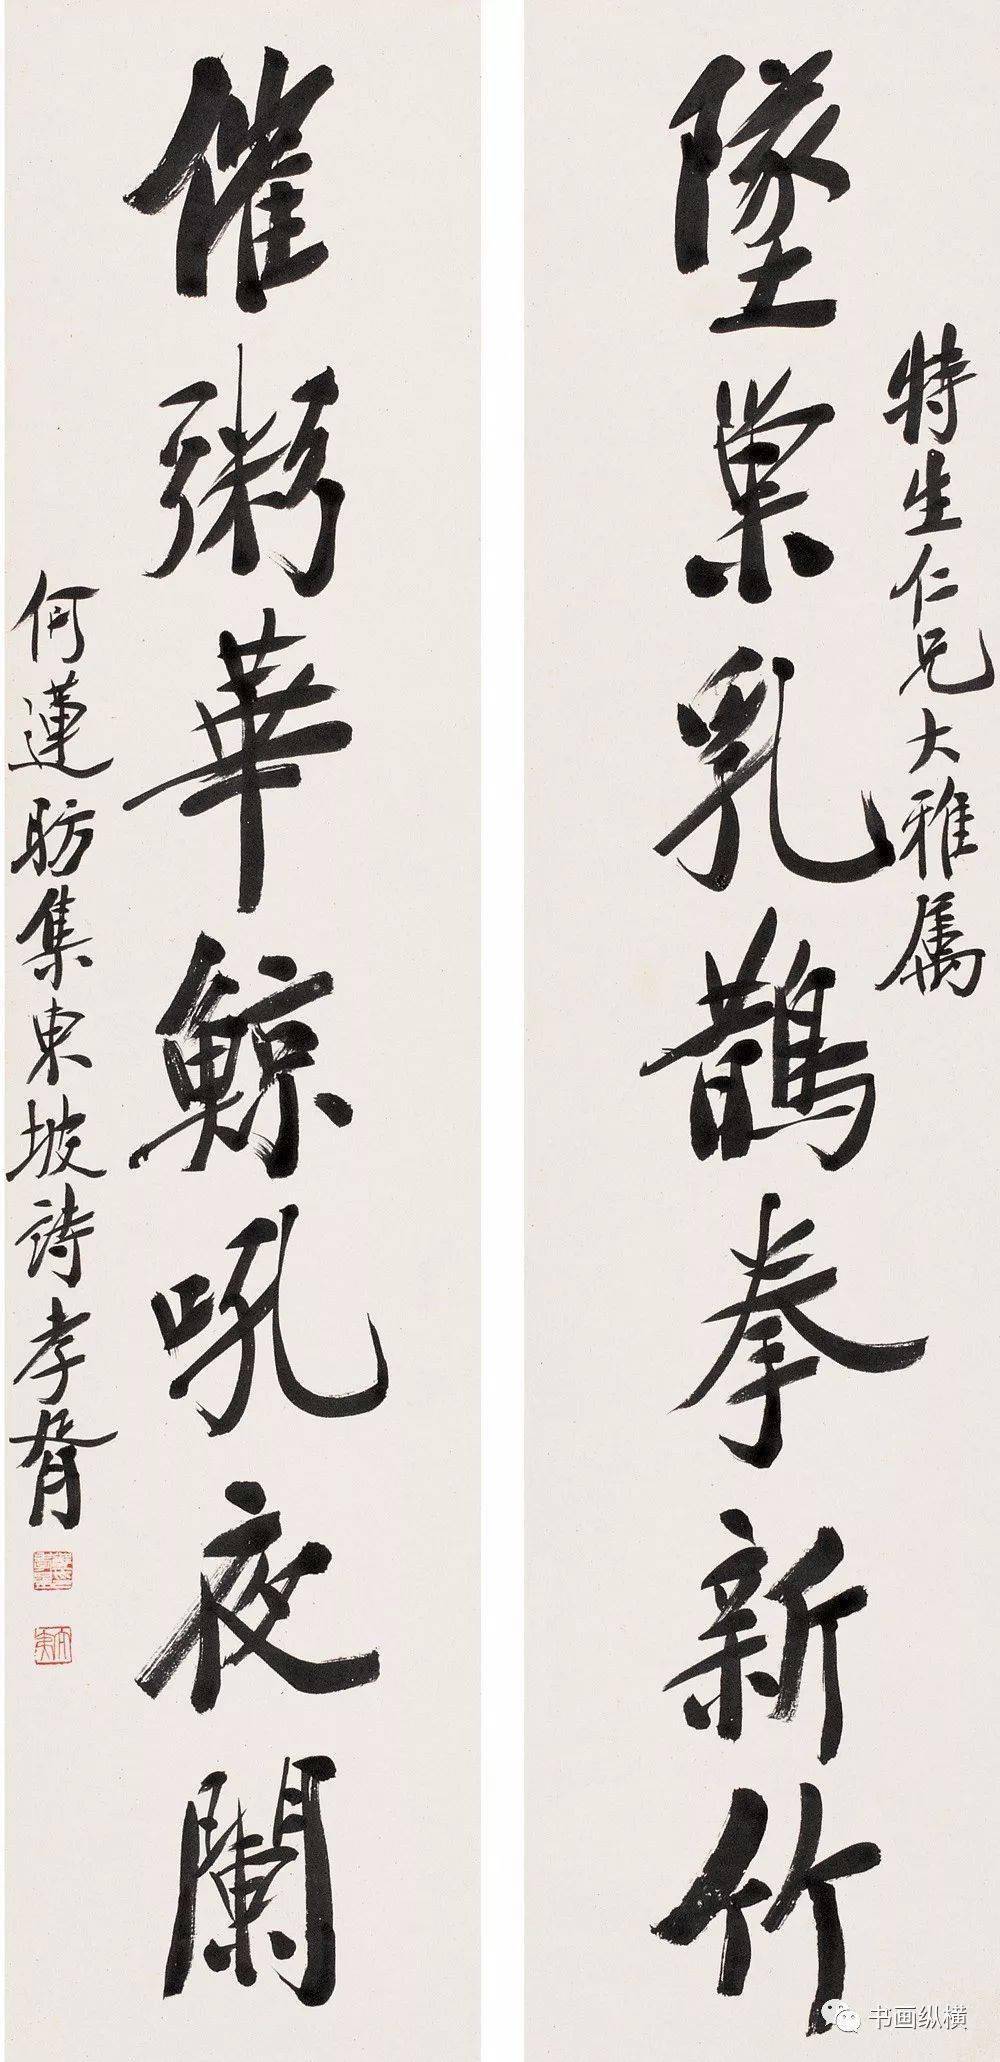 特生仁兄大雅属
墜巢乳鵲拳新竹
催粥華鯨吼夜闌
何蓮舫集東坡詩孝胥
书画纵横